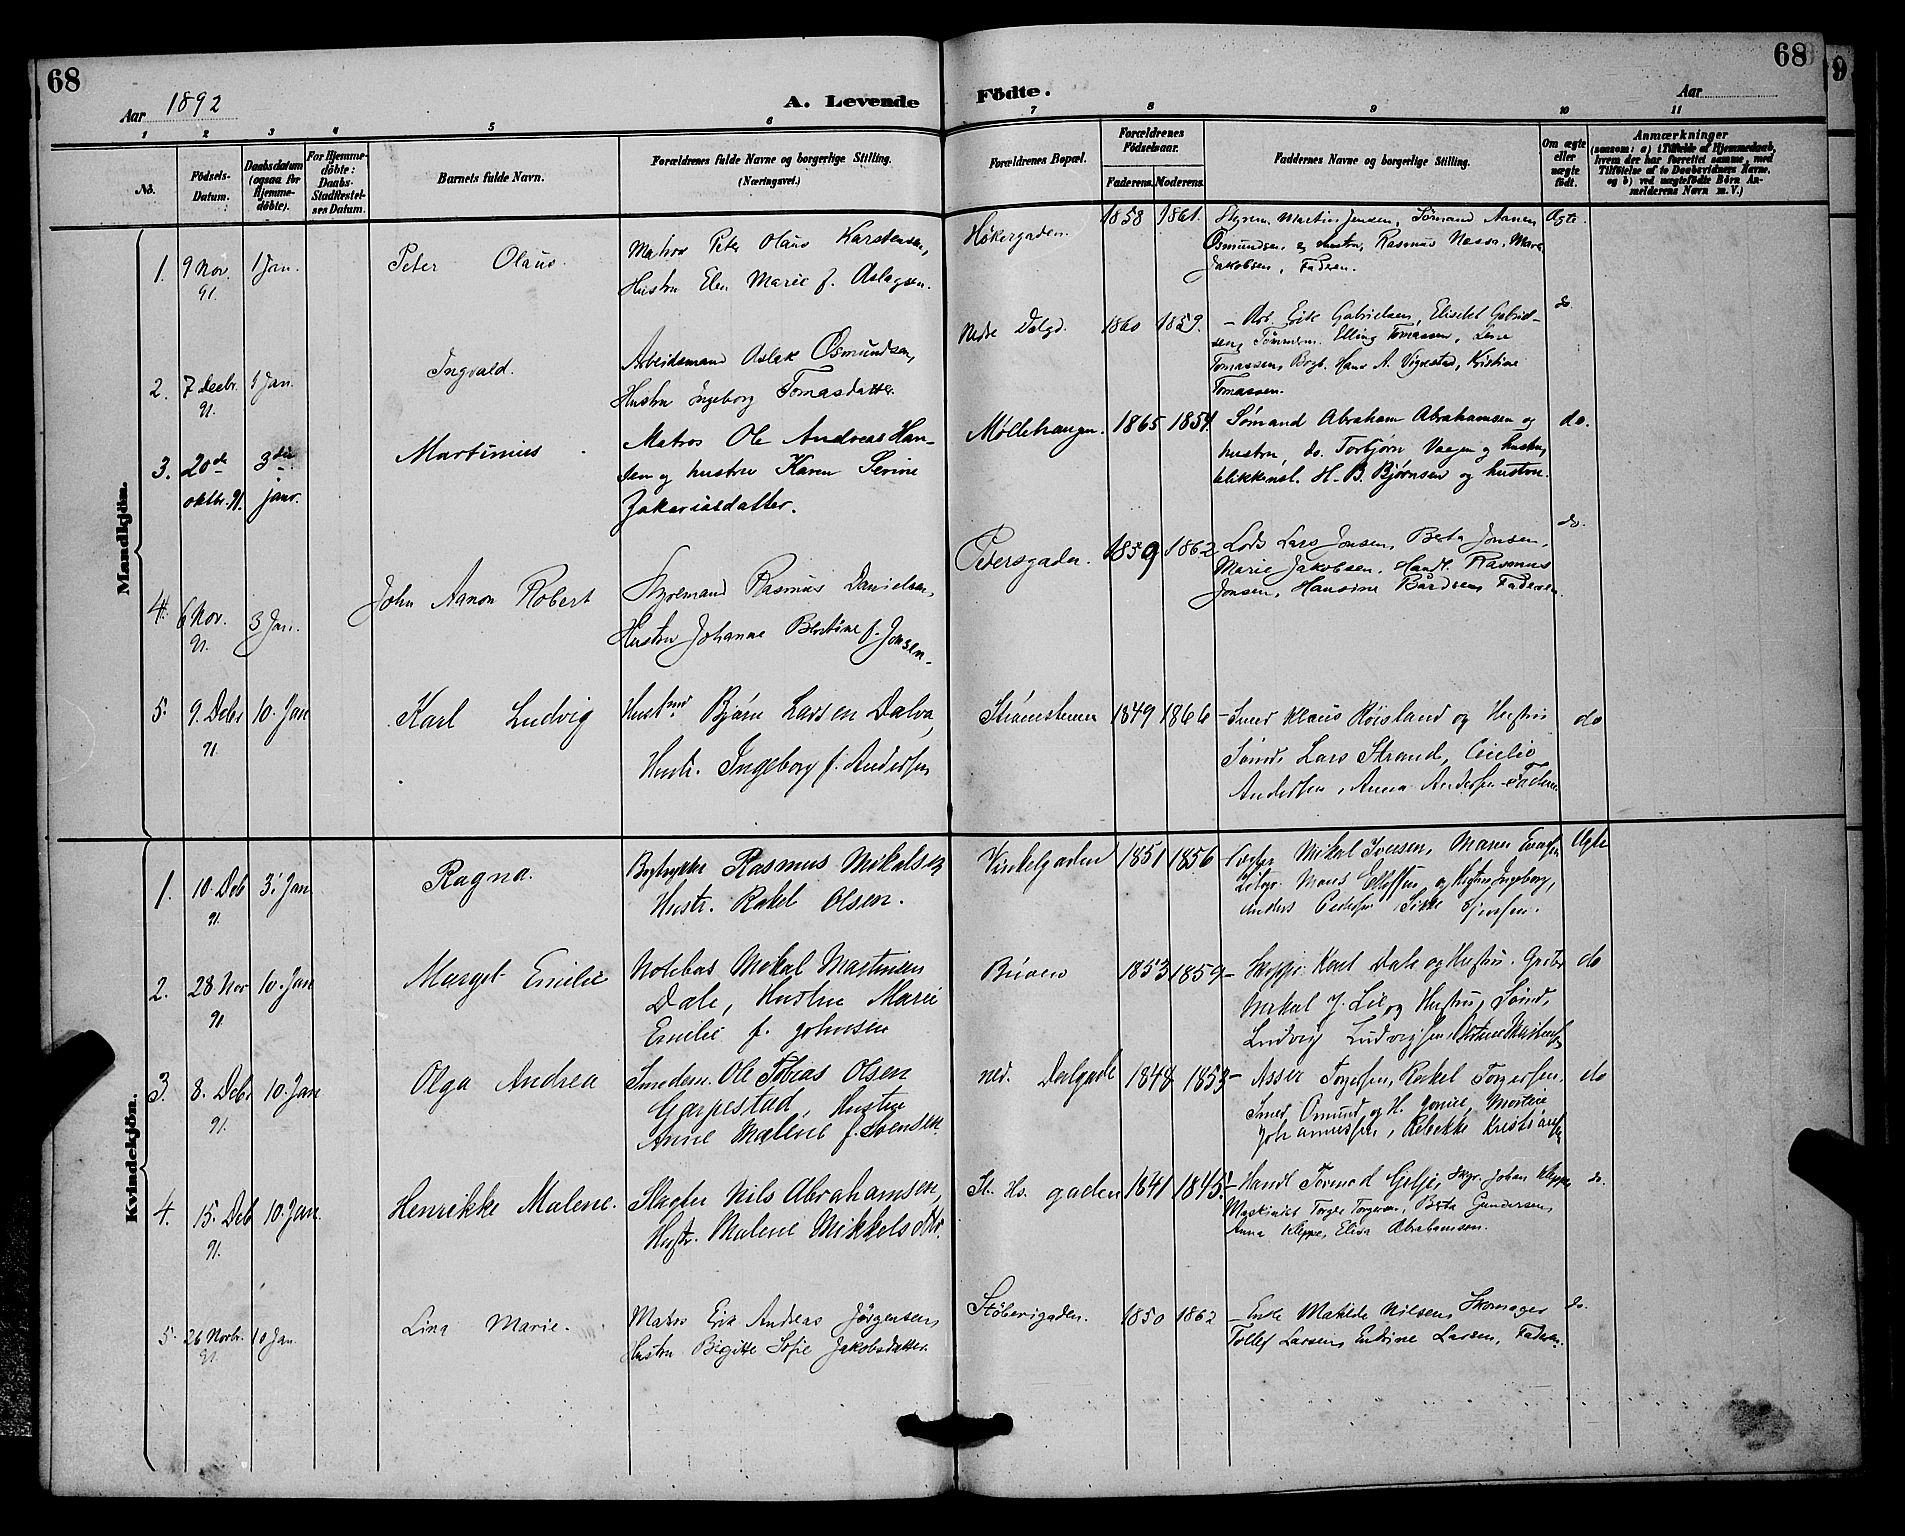 68
68
9
Aar 1892
A. Levende
Födte.
Aar
1
2
3
4
5
6
7
8
9
10
11
No.
Födsels-
Datum.
Daabsdatum
(ogsaa for
Hjemme-
döbte).
For Hjemme-
döbte:
Daabs-
Stadfestel-
ses Datum.
Barnets fulde Navn.
Forældrenes fulde Navne og borgerlige Stilling.
(Næringsvei.)
Forældrenes Bopæl.
Forældrenes
Födselsaar.
Faderens.
Moderens.
Faddernes Navne og borgerlige Stilling.
Om ægte
eller
uægte
födt.
Anmærkninger
(saasom: a) i Tilfælde af Hjemmedaab,
hvem der har forrettet samme, med
Tilföielse af to Daabsvidners Navne,
og b) ved uægtefödte Börn An-
melderens Navn m. V.)
Mandkjön.
1.
9 Nov.
91.
1 Jan.
Peter Olaus.
Matros Peter Olaus Karstensen,
Hustru Elen Marie f. Aslagsen.
Høkergaden.
1858
1861.
Styrem. Martin Jensen, Sømand Aanen
Osmundsen og hustru, Rasmus Nessa, Marie
Jakobsen, Faderen.
Ægte.
2.
7 Decbr.
91.
1 Jan.
Ingvald.
Arbeidsmand Aslak Osmundsen,
Hustru Ingeborg Tomasdatter.
Nedre Dalgd.
1860
1859.
- Arb. Erik Gabrielsen, Elisabet Gabriel-
sen, Tømmerm. Elling Tomassen, Lene
Tomassen, Bogb. Hans A. Vigestad, Kristine
Tomassen.
do
3.
20de
oktbr. 91.
3die
janr.
Martinius
Matros Ole Andreas Han-
sen og hustru Karen Serine
Zakariasdatter.
Møllehaugen.
1865
1854.
Sømand Abraham Abrahamsen og
hustru, do. Torbjørn Vaagen og hustru,
blikkensl. H. B. Bjørnsen og hustru.
do.
4.
6 Nov.
91.
3 Jan.
John Aanon Robert
Styremand Rasmus Danielsen,
Hustru Johanne Bertine f. Jonsen.
Pedersgaden.
1859
1862
Lods Lars Jonsen, Berta Jonsen,
Marie Jakobsen, Handl. Rasmus
Jonsen, Hansine Bårdsen, Faderen.
do.
5.
9. Debr
91.
10. Jan
Karl Ludvig
Hustmd Bjørn Larsen Dalva,
Hustr. Ingeborg f. Andersen
Strømsteen
1849
1866
- Smed Klaus Høisland og Hustru
Sømd. Lars Strand, Cecilie
Andersen, Anna Andersen - Faderen
do
Kvindekjön.
1.
10. Deb
91.
3. Jan
Ragna.
Bogtrykker Rasmus Mikalsen
Hustr. Rakel Olsen.
Vinkelgaden
1851
1856
Mikal Ivensen, Maren
Maas og Hustru Ingeborg,
Anders Pedersen
Ægte
2.
28 Nov
91.
10. Jan
Marget Emilie
Notebas Mikal Martinsen
Dale, Hustru Marie
Emilie f. Johnsen
1853
1859
- Skipper Knut Dale og Hustru.
Mikal J. Lie og Hustru, Sømd.
Ludvig Ludvigsen,
do
3.
8. Debr
91.
10. Jan
Olga Andrea
Smedem. Ole Tobias Olsen
Garpestad, Hustru
Anne Malene f. Svensen.
ned. Dalgade
1848
1853
- Asser Torgersen, Rakel Torgersen.
Smed Omund og H. Gonie, Martin
Johannessen, Rebekke Kristiansen
do
4.
15. Deb
91.
10. Jan.
Henrikke Malene.
Slagter Nils Abrahamsen,
Hustr. Malene Mikkelsdtr.
St. Hs. gaden
1841
1845.
- Handl. Tormod Gjelje, Skpr. Johan Kleppe,
Maskinist Torger Torgersen, Berta Gundersen,
Anna Kleppe, Elisa Abrahamsen.
do.
5.
26 Novbr.
91.
10 Jan.
Lina Marie.
Matros Erik Andreas Jörgensen,
Hustru Birgitte Sofie Jakobsdatter.
Støberigaden.
1850
1862
- Enke Matilde Nilsen, Skomager
Tollef Larsen, Endrine Larsen, Faderen.
do.